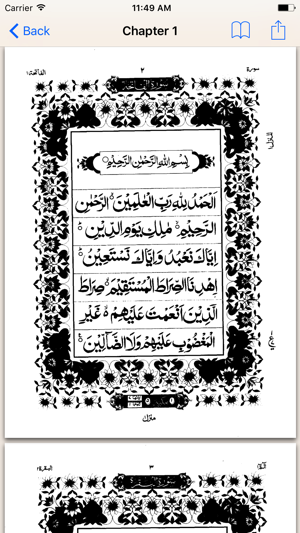 Carrier 11:49 AM
Back Chapter 1
الفاتحة ١ ٢ سورة
سورة الفاتحة
بِسْمِ اللهِ الرَّحْمٰنِ الرَّحِيْمِ
اَلْحَمْدُ لِلّٰهِ رَبِّ الْعٰلَمِيْنَ الرَّحْمٰنِ
الرَّحِيْمِ مٰلِكِ يَوْمِ الدِّيْنِ
اِيَّاكَ نَعْبُدُ وَاِيَّاكَ نَسْتَعِيْنُ
اِهْدِنَا الصِّرَاطَ الْمُسْتَقِيْمَ صِرَاطَ
الَّذِيْنَ اَنْعَمْتَ عَلَيْهِمْ غَيْرِ
الْمَغْضُوْبِ عَلَيْهِمْ وَلَا الضَّآلِّيْنَ
منزل
البقرة ٣
سورة البقرة